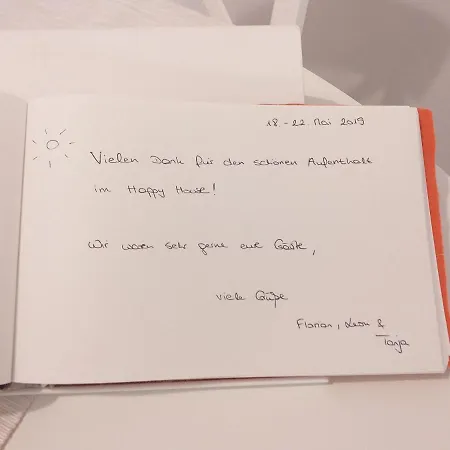 18 - 22. Mai 2019
Vielen Dank für den schönen Aufenthalt
im Happy House!
Wir waren sehr gerne eure Gäste,
viele Grüße
Florian, Leon &
Tanja